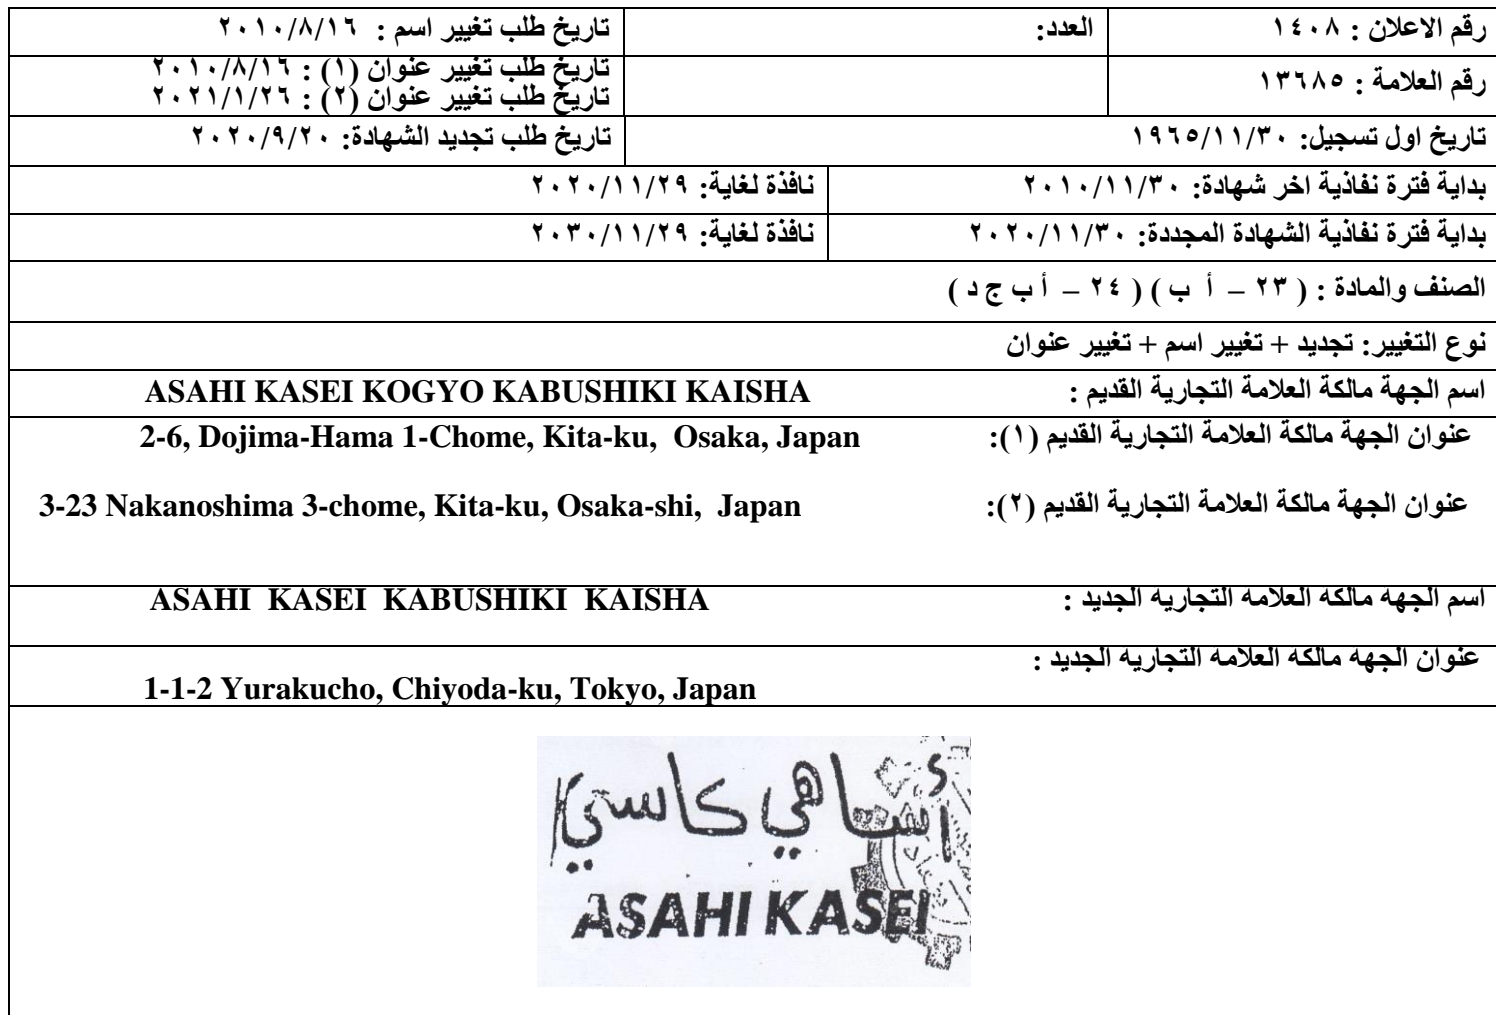 رقم الاعلان : ١٤٠٨
العدد:
تاريخ طلب تغيير اسم : ٢٠١٠/٨/١٦
رقم العلامة : ١٣٦٨٥
تاريخ طلب تغيير عنوان (١) : ٢٠١٠/٨/١٦
تاريخ طلب تغيير عنوان (٢) : ٢٠٢١/١/٢٦
تاريخ اول تسجيل: ١٩٦٥/١١/٣٠
تاريخ طلب تجديد الشهادة: ٢٠٢٠/٩/٢٠
بداية فترة نفاذية اخر شهادة: ٢٠١٠/١١/٣٠
نافذة لغاية: ٢٠٢٠/١١/٢٩
بداية فترة نفاذية الشهادة المجددة: ٢٠٢٠/١١/٣٠
نافذة لغاية: ٢٠٣٠/١١/٢٩
الصنف والمادة : ( ٢٣ – أ ب ) ( ٢٤ – أ ب ج د )
نوع التغيير: تجديد + تغيير اسم + تغيير عنوان
اسم الجهة مالكة العلامة التجارية القديم : ASAHI KASEI KOGYO KABUSHIKI KAISHA
عنوان الجهة مالكة العلامة التجارية القديم (١): 2-6, Dojima-Hama 1-Chome, Kita-ku, Osaka, Japan
عنوان الجهة مالكة العلامة التجارية القديم (٢): 3-23 Nakanoshima 3-chome, Kita-ku, Osaka-shi, Japan
اسم الجهة مالكة العلامة التجارية الجديد : ASAHI KASEI KABUSHIKI KAISHA
عنوان الجهة مالكة العلامة التجارية الجديد :
1-1-2 Yurakucho, Chiyoda-ku, Tokyo, Japan
أساهي كاسيي
ASAHI KASEI